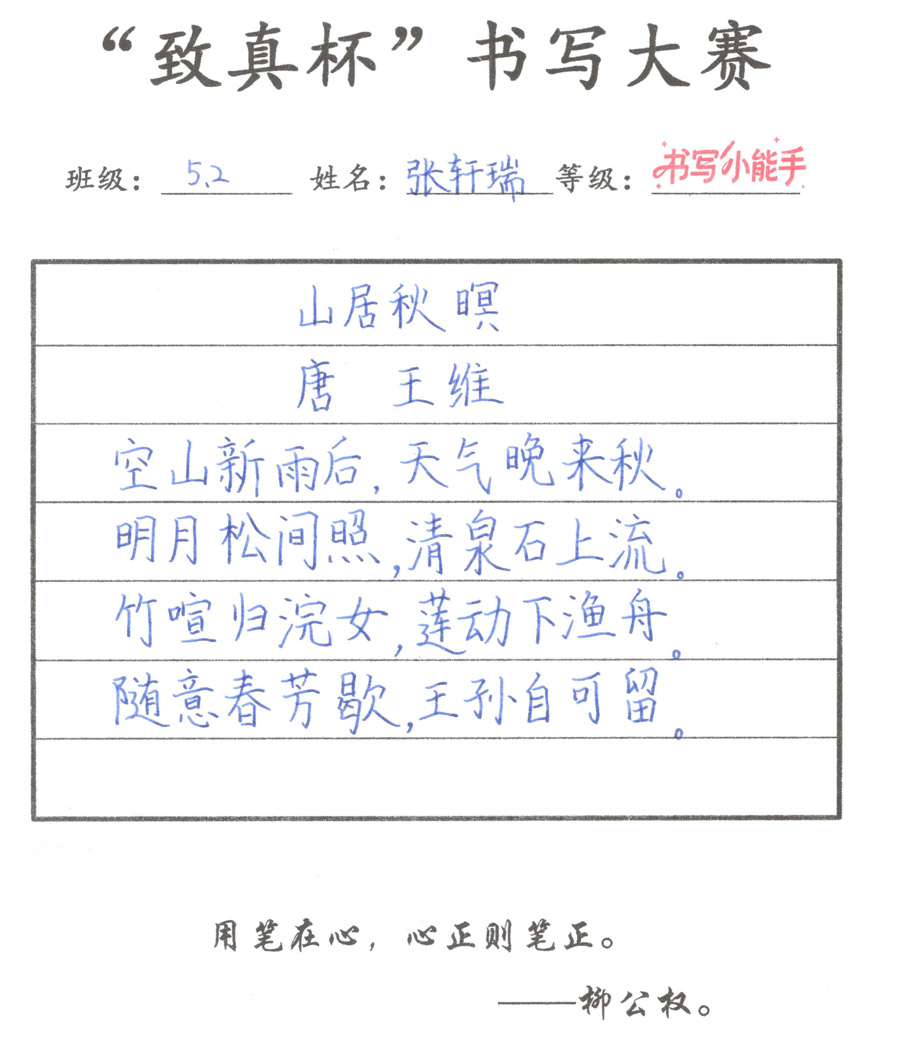 “致真杯”书写大赛
班级：5.2 姓名：张轩瑞 等级：书写小能手
山居秋暝
唐 王维
空山新雨后，天气晚来秋。
明月松间照，清泉石上流。
竹喧归浣女，莲动下渔舟。
随意春芳歇，王孙自可留。
用笔在心，心正则笔正。
——柳公权。